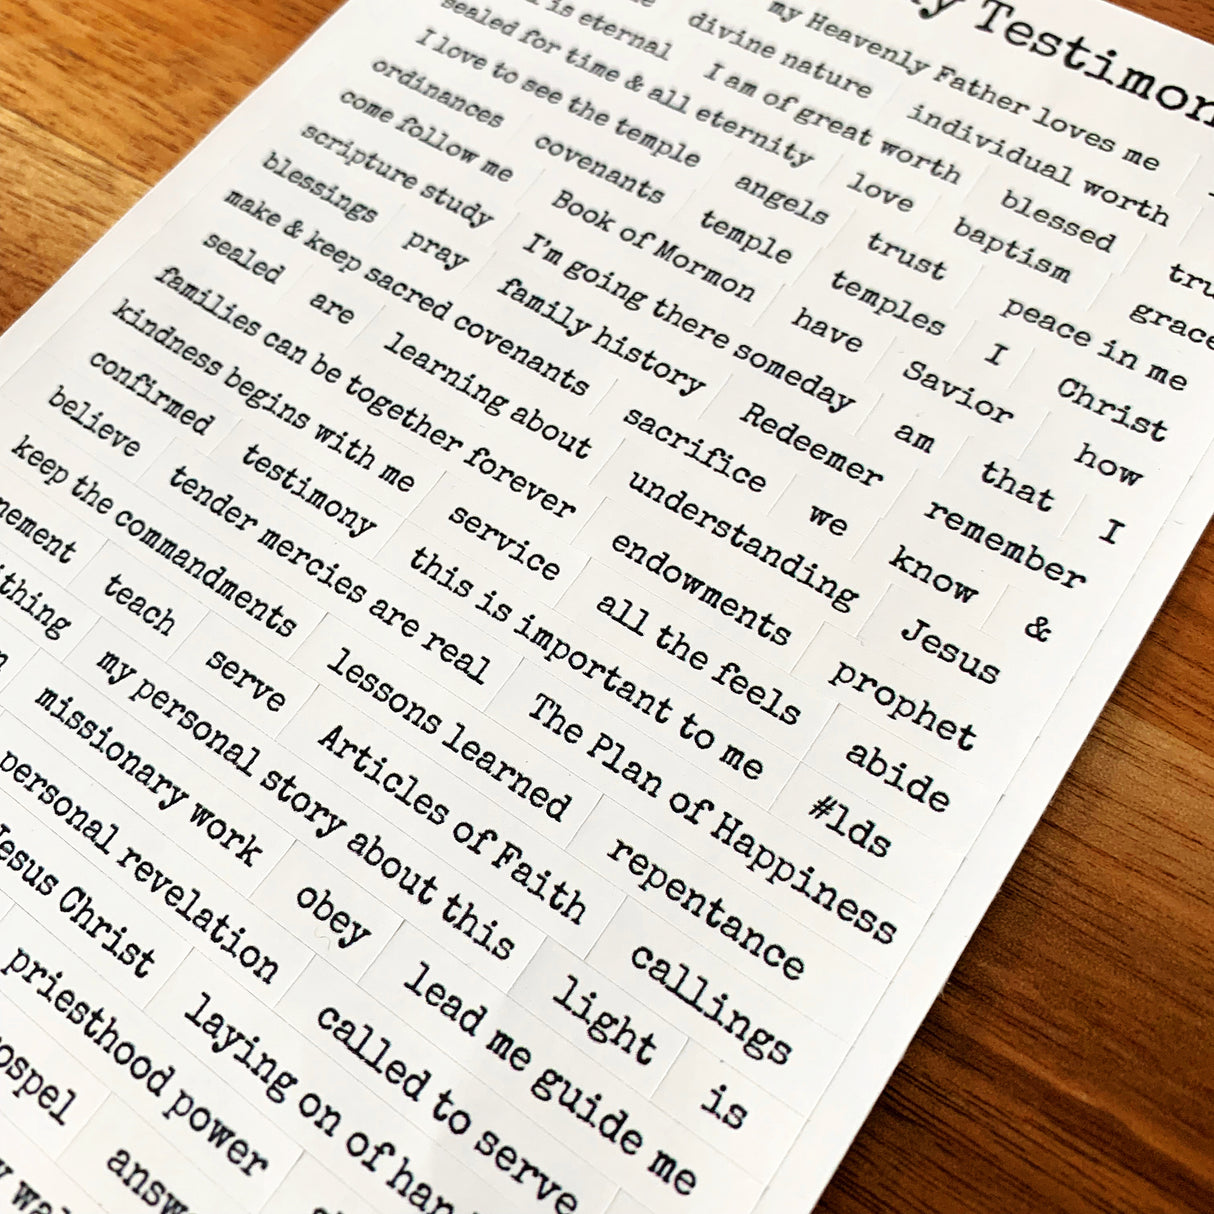 y Testimon
my Heavenly Father loves me
divine nature individual worth
is eternal I am of great worth blessed tru
sealed for time & all eternity love baptism grace
I love to see the temple angels trust peace in me
ordinances covenants temple temples I Christ
come follow me Book of Mormon have Savior how
scripture study I'm going there someday am that I
blessings pray family history Redeemer remember
make & keep sacred covenants sacrifice we know &
sealed are learning about understanding Jesus
families can be together forever endowments prophet
kindness begins with me service all the feels abide
confirmed testimony this is important to me #lds
believe tender mercies are real The Plan of Happiness
keep the commandments lessons learned repentance
nement teach serve Articles of Faith callings
thing my personal story about this light is
missionary work obey lead me guide me
personal revelation called to serve
Jesus Christ laying on of han
priesthood power
ospel answ
y wa